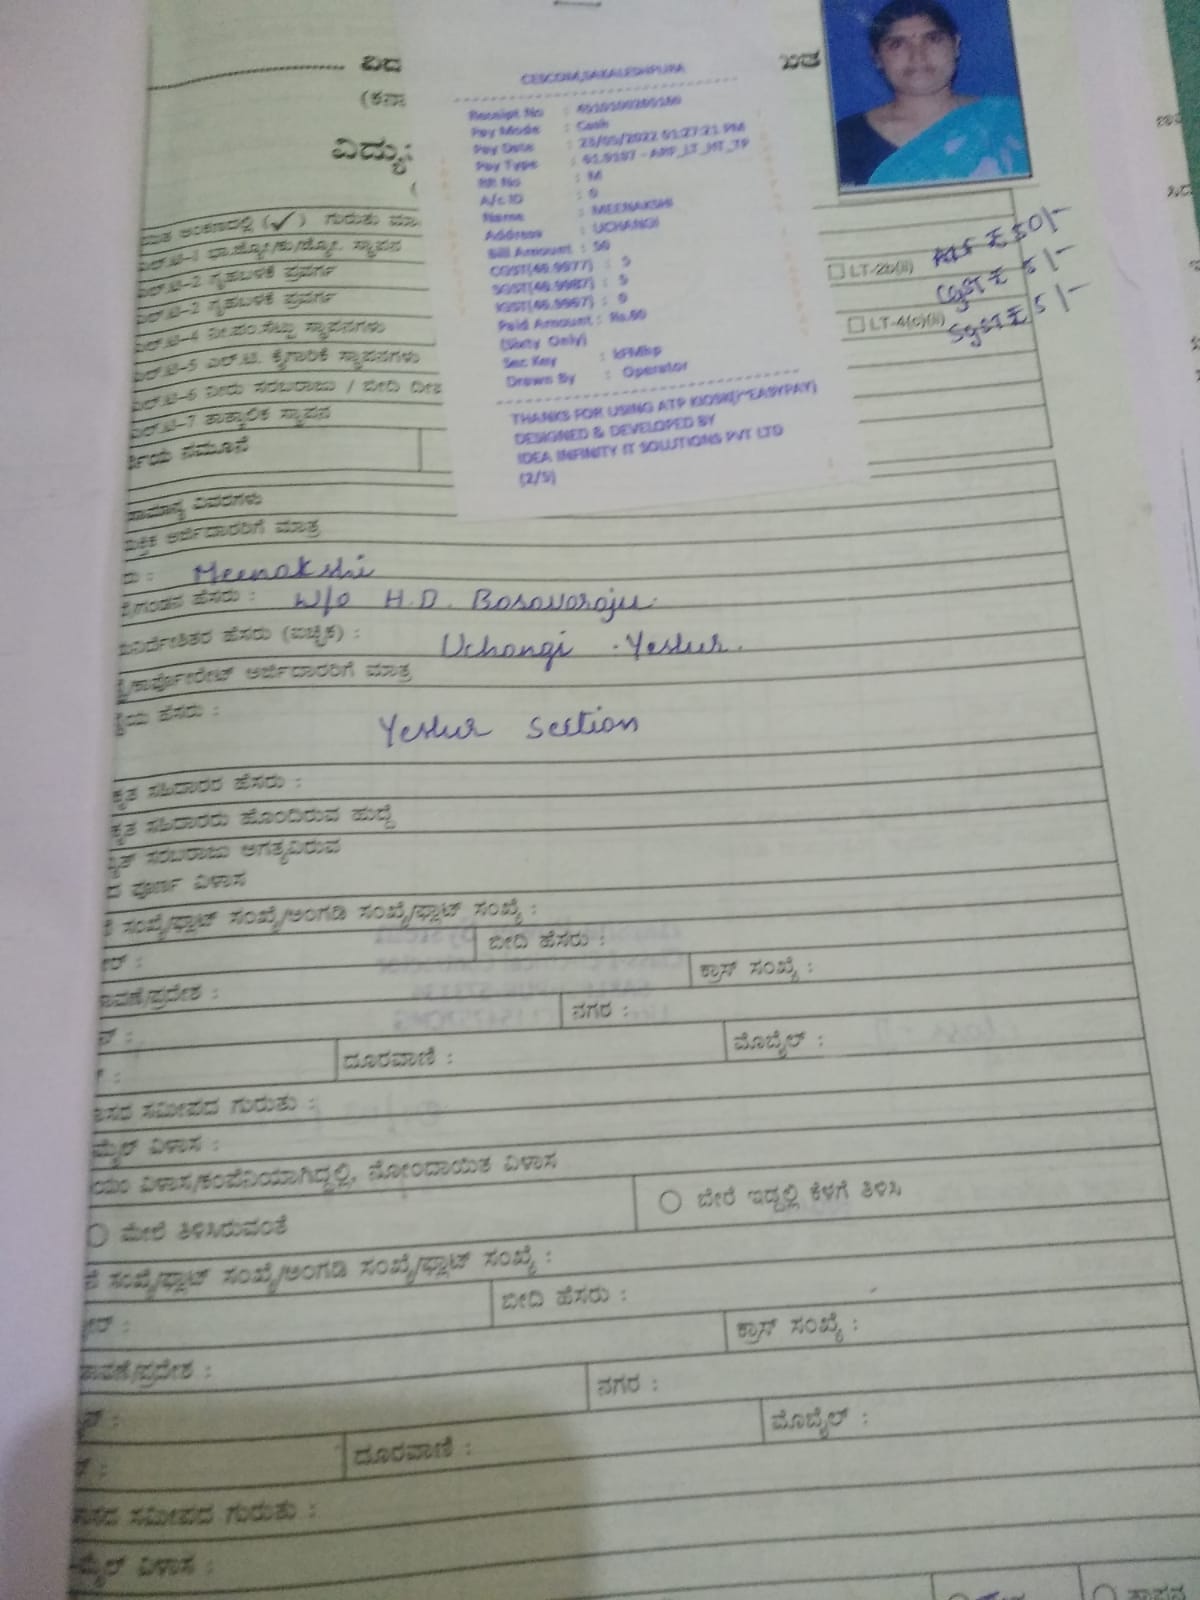 CESCOM,SAKALESHPURA
Receipt No :
Pay Mode : Cash
Pay Date : 23/05/2022 01:27:21 PM
Pay Type : 61.9107 - ARF_LT_HT_TP
RR No : M
A/c ID : 0
Name : MEENAKSHI
Address : UCHANGI
Bill Amount : 50
CGST(46.9977) : 5
SGST(46.9987) : 5
IGST(46.9967) : 0
Paid Amount : Rs.60
(Sixty Only)
Sec Key :
Drawn By : Operator
THANKS FOR USING ATP KIOSK(~EASYPAY)
DESIGNED & DEVELOPED BY
IDEA INFINITY IT SOLUTIONS PVT LTD
(2/5)
(ಕರ್ನಾ
ವಿದ್ಯು
ಅಂಕಣದಲ್ಲಿ (✓) ಗುರುತು ಮಾ
ಎಲ್.ಟಿ-1 ಭಾ.ಜ್ಯೋ/ಕು/ಜ್ಯೋ. ಸ್ಥಾಪನ
ಎಲ್.ಟಿ-2 ಗೃಹಬಳಕೆ ಪ್ರವರ್ಗ
☐ LT-2b(ii)
ARF ₹ 50/-
ಎಲ್.ಟಿ-2 ಗೃಹಬಳಕೆ ಪ್ರವರ್ಗ
CGST ₹ 5/-
ಎಲ್.ಟಿ-4 ನೀ.ಪಂ.ಸೆಟ್ಟು ಸ್ಥಾಪನಗಳು
☐ LT-4(c)(ii)
SGST ₹ 5/-
ಎಲ್.ಟಿ-5 ಎಲ್.ಟಿ. ಕೈಗಾರಿಕೆ ಸ್ಥಾಪನಗಳು
ಎಲ್.ಟಿ-6 ನೀರು ಸರಬರಾಜು / ಬೀದಿ ದೀಪ
ಎಲ್.ಟಿ-7 ತಾತ್ಕಾಲಿಕ ಸ್ಥಾಪನ
ನಮೂನೆ
ಸಾಮಾನ್ಯ ವಿವರಗಳು
ಅರ್ಜಿದಾರರಿಗೆ ಮಾತ್ರ
ರು : Meenakshi
/ಗಂಡನ ಹೆಸರು : W/o H.D. Basavaraju
ನಿರ್ದೇಶಿತರ ಹೆಸರು (ಐಚ್ಛಿಕ) : Uchangi . Yeslur.
/ಕಾರ್ಪೋರೇಟ್ ಅರ್ಜಿದಾರರಿಗೆ ಮಾತ್ರ
ಯ ಹೆಸರು : Yeslur Section
ಕೃತ ಸಹಿದಾರರ ಹೆಸರು :
ಕೃತ ಸಹಿದಾರರು ಹೊಂದಿರುವ ಹುದ್ದೆ
ಸರಬರಾಜು ಅಗತ್ಯವಿರುವ
ದ ಪೂರ್ಣ ವಿಳಾಸ
ಸಂಖ್ಯೆ/ಫ್ಲಾಟ್ ಸಂಖ್ಯೆ/ಅಂಗಡಿ ಸಂಖ್ಯೆ/ಪ್ಲಾಟ್ ಸಂಖ್ಯೆ :
ಬೀದಿ ಹೆಸರು :
ಾವಣೆ/ಪ್ರದೇಶ :
ಕ್ರಾಸ್ ಸಂಖ್ಯೆ :
ನಗರ :
ದೂರವಾಣಿ :
ಮೊಬೈಲ್ :
ಸದ ಸಮೀಪದ ಗುರುತು :
ಮೈಲ್ ವಿಳಾಸ :
ವಿಳಾಸ/ಕಂಪೆನಿಯಾಗಿದ್ದಲ್ಲಿ, ನೋಂದಾಯಿತ ವಿಳಾಸ
○ ಮೇಲೆ ತಿಳಿಸಿರುವಂತೆ
○ ಬೇರೆ ಇದ್ದಲ್ಲಿ ಕೆಳಗೆ ತಿಳಿಸಿ
ಸಂಖ್ಯೆ/ಫ್ಲಾಟ್ ಸಂಖ್ಯೆ/ಅಂಗಡಿ ಸಂಖ್ಯೆ/ಪ್ಲಾಟ್ ಸಂಖ್ಯೆ :
ಬೀದಿ ಹೆಸರು :
ಾವಣೆ/ಪ್ರದೇಶ :
ಕ್ರಾಸ್ ಸಂಖ್ಯೆ :
ನಗರ :
ದೂರವಾಣಿ :
ಮೊಬೈಲ್ :
ಸದ ಸಮೀಪದ ಗುರುತು :
ಮೈಲ್ ವಿಳಾಸ :